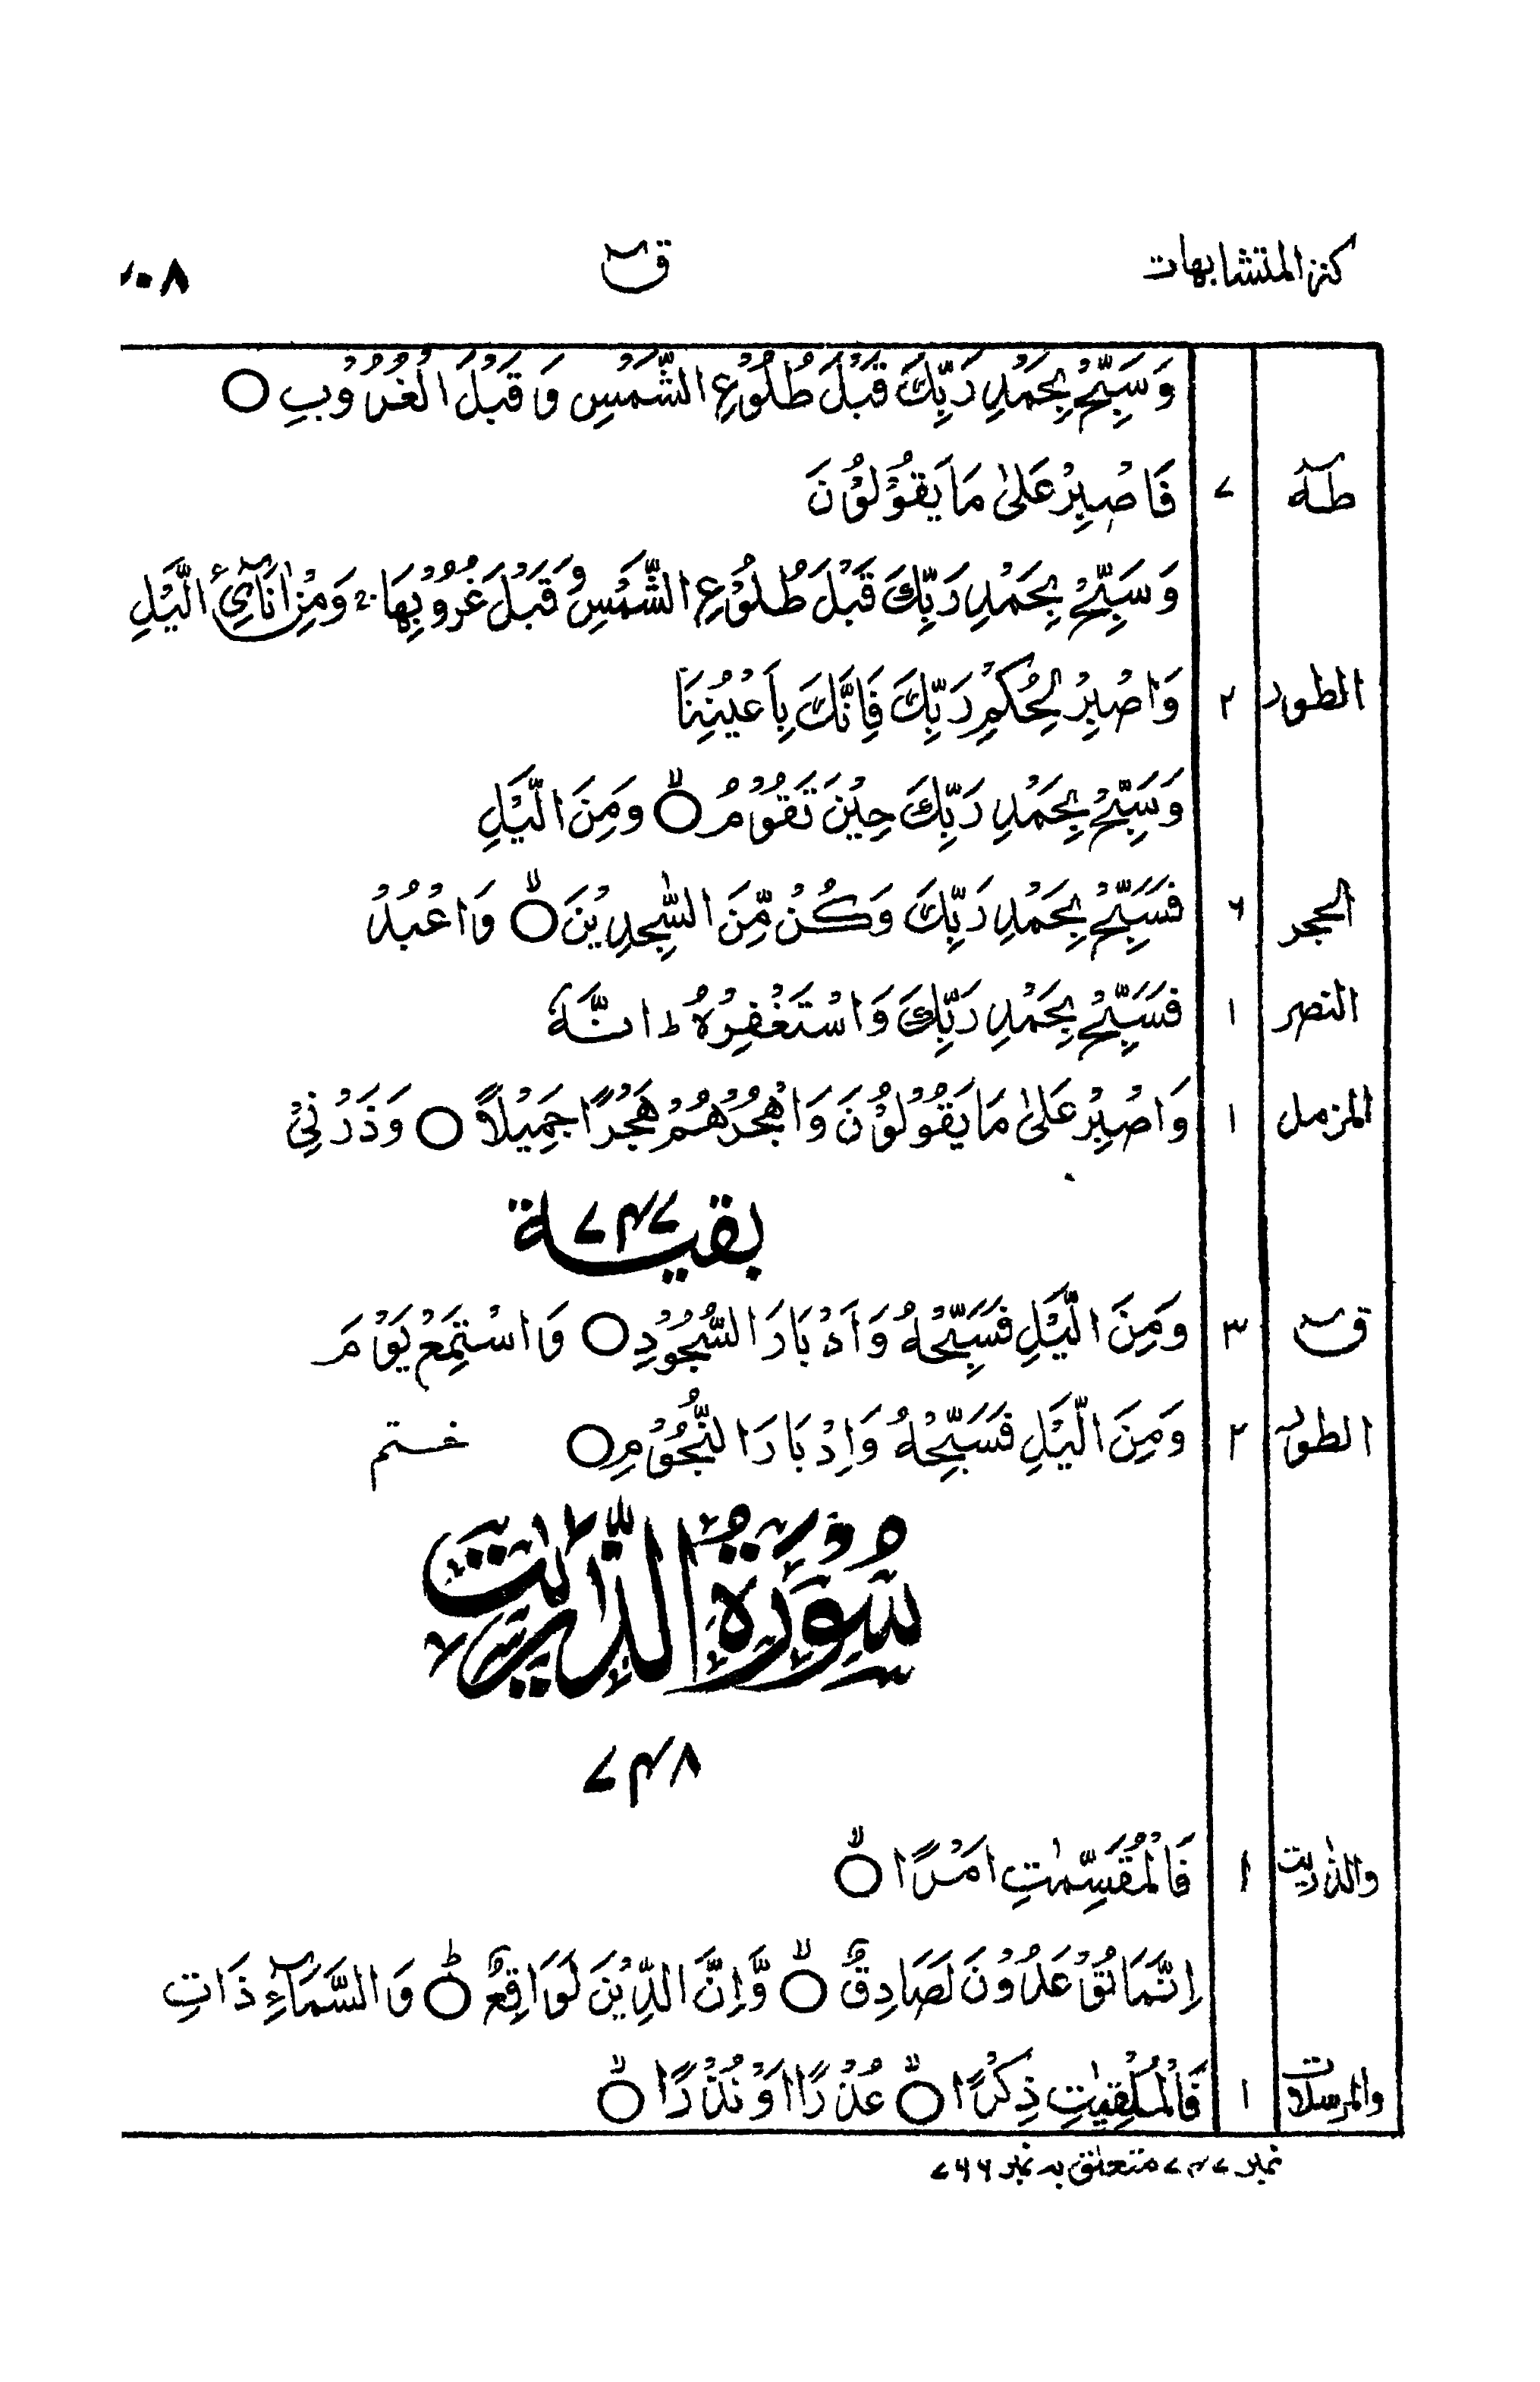 كنز المتشابهات قٓ ۰۸
وَسَبِّحْ بِحَمْدِ رَبِّكَ قَبْلَ طُلُوْعِ الشَّمْسِ وَقَبْلَ الْغُرُوْبِ ○
طٰهٰ ۷ فَاصْبِرْ عَلٰى مَا يَقُوْلُوْنَ
وَسَبِّحْ بِحَمْدِ رَبِّكَ قَبْلَ طُلُوْعِ الشَّمْسِ وَقَبْلَ غُرُوْبِهَا ۚ وَمِنْ اٰنَآئِ الَّيْلِ
الطور ۲ وَاصْبِرْ لِحُكْمِ رَبِّكَ فَاِنَّكَ بِاَعْيُنِنَا
وَسَبِّحْ بِحَمْدِ رَبِّكَ حِيْنَ تَقُوْمُ ○ۙ وَمِنَ الَّيْلِ
الحجر ۶ فَسَبِّحْ بِحَمْدِ رَبِّكَ وَكُنْ مِّنَ السّٰجِدِيْنَ ○ۙ وَاعْبُدْ
النصر ۱ فَسَبِّحْ بِحَمْدِ رَبِّكَ وَاسْتَغْفِرْهُ ؕ اِنَّهٗ
المزمل ۱ وَاصْبِرْ عَلٰى مَا يَقُوْلُوْنَ وَاهْجُرْهُمْ هَجْرًا جَمِيْلًا ○ وَذَرْنِيْ
بقية ۷۴۷
قٓ ۳ وَمِنَ الَّيْلِ فَسَبِّحْهُ وَاَدْبَارَ السُّجُوْدِ ○ وَاسْتَمِعْ يَوْمَ
الطور ۲ وَمِنَ الَّيْلِ فَسَبِّحْهُ وَاِدْبَارَ النُّجُوْمِ ○ ختم
سُوْرَةُ الذّٰرِيٰت
۷۴۸
والذٰريٰت ۱ فَالْمُقَسِّمٰتِ اَمْرًا ○ۙ
اِنَّمَا تُوْعَدُوْنَ لَصَادِقٌ ○ۙ وَّاِنَّ الدِّيْنَ لَوَاقِعٌ ○ؕ وَالسَّمَآءِ ذَاتِ
والمرسلات ۱ فَالْمُلْقِيٰتِ ذِكْرًا ○ۙ عُذْرًا اَوْ نُذْرًا ○ۙ
نمبر ۷۴۷ متعلق بہ نمبر ۷۶۶